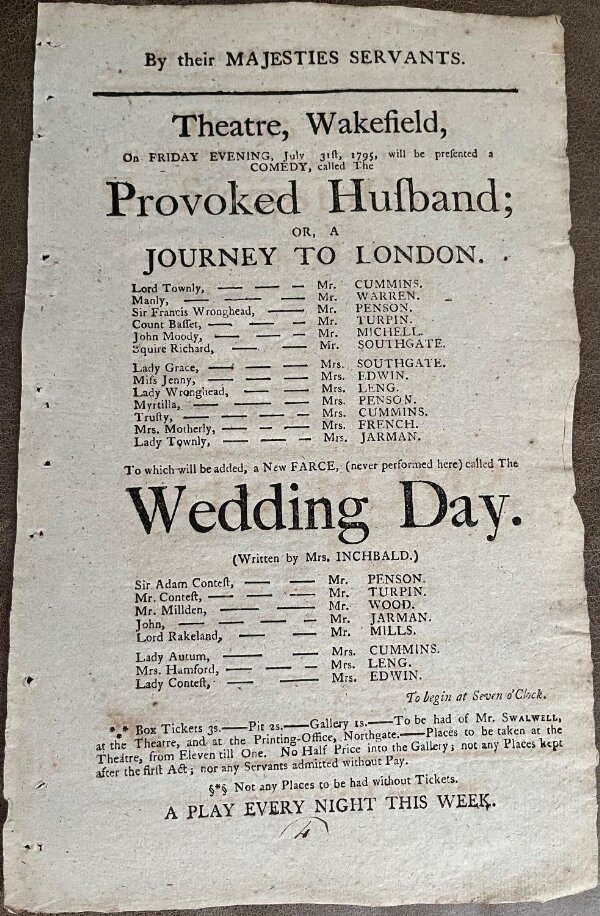 By their MAJESTIES SERVANTS.
Theatre, Wakefield,
On FRIDAY EVENING, July 31ſt, 1795, will be preſented a
COMEDY, called The
Provoked Huſband;
OR, A
JOURNEY TO LONDON.
Lord Townly, — — — Mr. CUMMINS.
Manly, — — — Mr. WARREN.
Sir Francis Wronghead, — — Mr. PENSON.
Count Baſſet, — — — Mr. TURPIN.
John Moody, — — — Mr. MICHELL.
Squire Richard, — — Mr. SOUTHGATE.
Lady Grace, — — — Mrs. SOUTHGATE.
Miſs Jenny, — — — Mrs. EDWIN.
Lady Wronghead, — — Mrs. LENG.
Myrtilla, — — — Mrs. PENSON.
Truſty, — — — — Mrs. CUMMINS.
Mrs. Motherly, — — — Mrs. FRENCH.
Lady Townly, — — — Mrs. JARMAN.
To which will be added, a New FARCE, (never performed here) called The
Wedding Day.
(Written by Mrs. INCHBALD.)
Sir Adam Conteſt, — — Mr. PENSON.
Mr. Conteſt, — — — Mr. TURPIN.
Mr. Millden, — — Mr. WOOD.
John, — — — — Mr. JARMAN.
Lord Rakeland, — — Mr. MILLS.
Lady Autum, — — — Mrs. CUMMINS.
Mrs. Hamford, — — — Mrs. LENG.
Lady Conteſt, — — — Mrs. EDWIN.
To begin at Seven o'Clock.
*⁎* Box Tickets 3s.—Pit 2s.—Gallery 1s.—To be had of Mr. SWALWELL,
at the Theatre, and at the Printing-Office, Northgate.—Places to be taken at the
Theatre, from Eleven till One. No Half Price into the Gallery; not any Places kept
after the firſt Act; nor any Servants admitted without Pay.
§*§ Not any Places to be had without Tickets.
A PLAY EVERY NIGHT THIS WEEK.
4